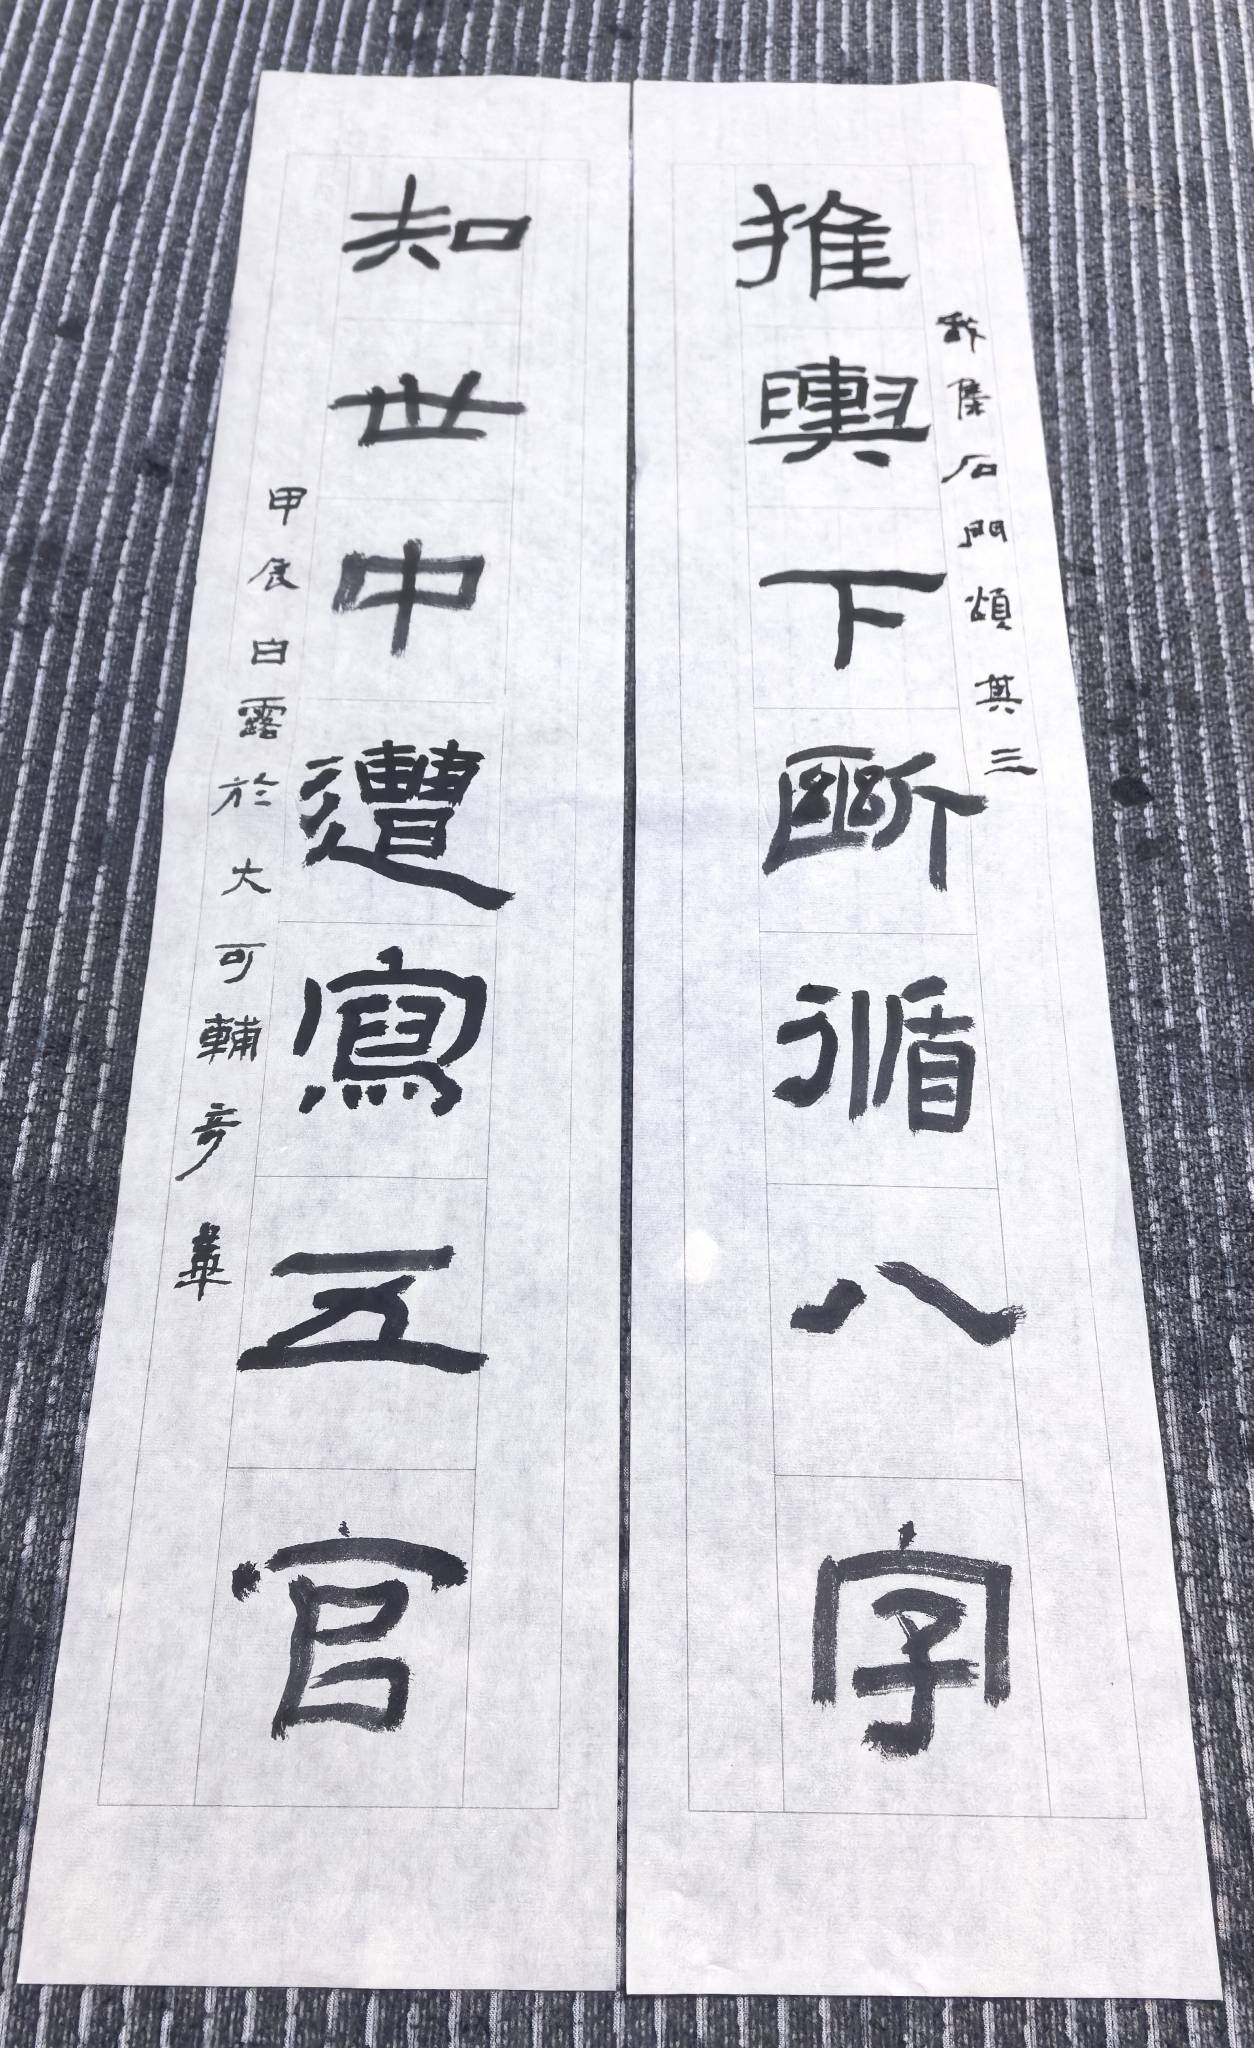 我集石門頌其三
推輿下斷循八字
知世中遭寫五官
甲辰白露於大可輔彥